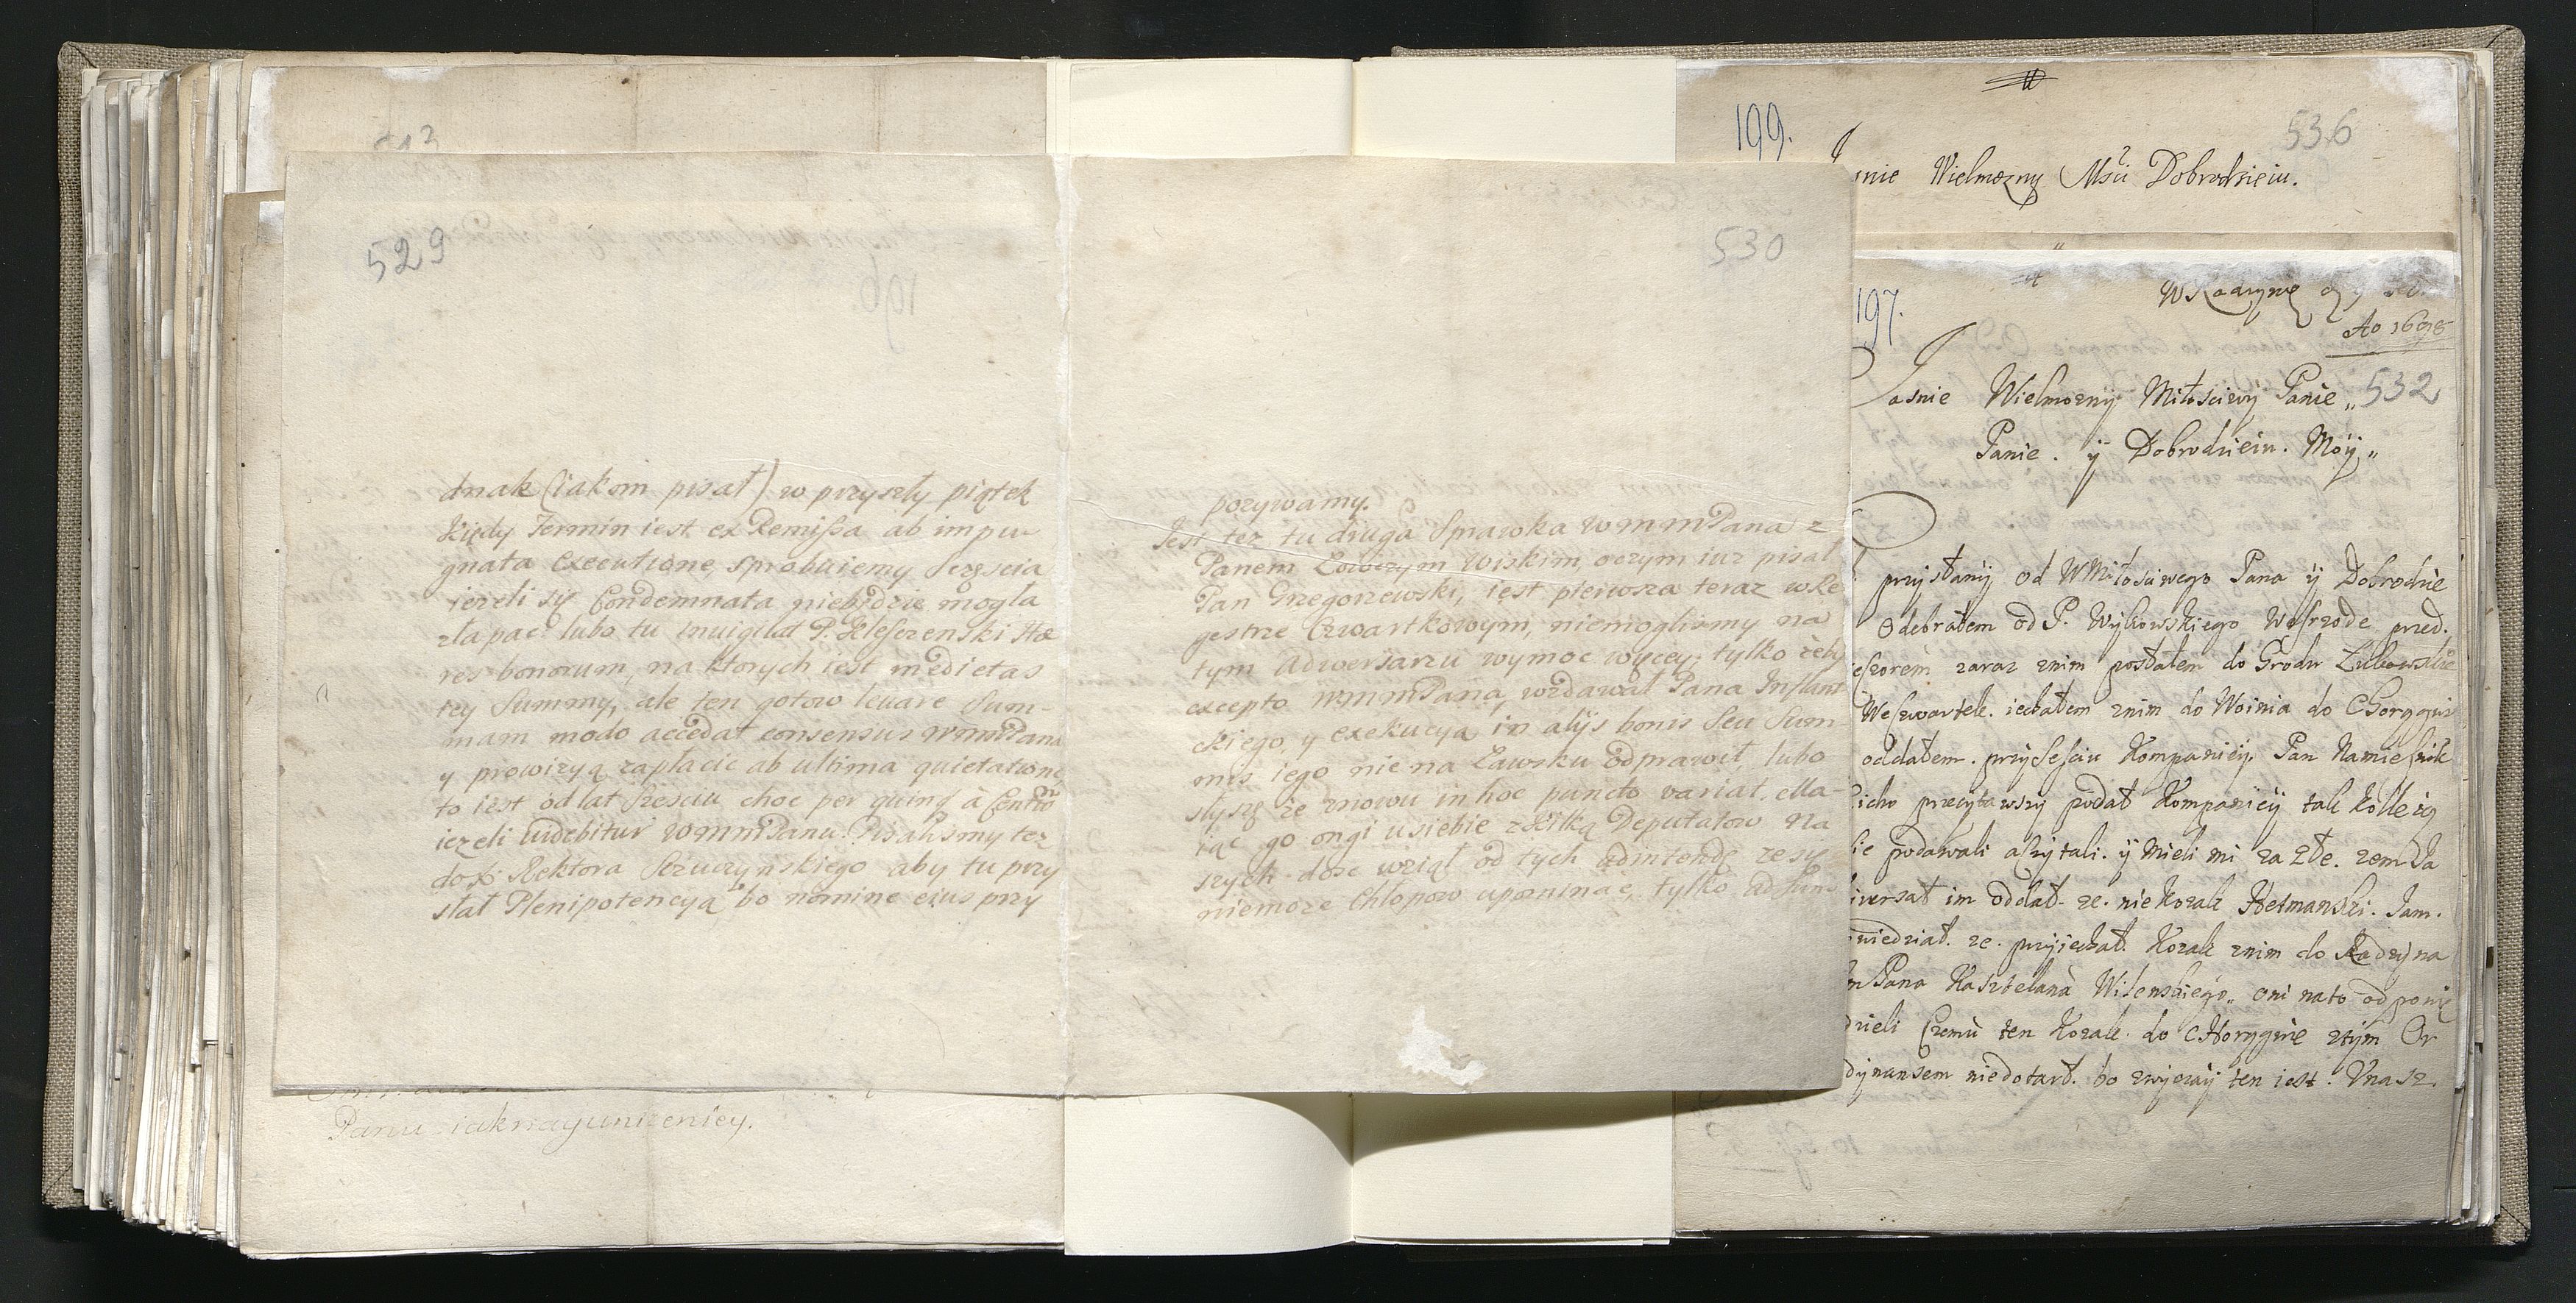 529
dnak (iakom pisał) w przyszły piątek
kiedy Termin iest ex Remissa ab impu
gnata executione, sprobuiemy Szczescia
iezeli się Condemnata niebędzie mogła
złapac: lubo tu inuigilat P. Kleszczenski Hæ
res bonorum, na ktorych iest medietas
tey Summy, ale ten gotow leuare Sum-
mam modo accedat consensus WmmPana
y prowizyą zapłacic ab ultima quietatione
to iest od lat szesciu choc per quinq à Cento
iezeli uidebitur WmmPanu. Pisalismy tez
do X: Rektora Szuczynskiego aby tu przy
słał Plenipotencyą bo nomine eius przy
Panu iaknayunizeniey.
530
pozywamy.
Jest tez tu druga Sprawka WmmPana z
Panem Łowczym Wiskim, oczym iuz pisał
Pan Grzegorzewski, iest pierwsza teraz w Re
gestrze Czwartkowym, niemoglismy na
tym Adwersarzu wymoc więcey, tylko zeby
excepto WmmPana, wzdawał Pana Inflant
ckiego, y exekucyą in alijs bonis Seu Sum
mis iego nie na Ławsku odprawił, lubo
słyszę ze znowu in hoc puncto variat. Ma-
iąc go ongi u siebie z kilką Deputatow Na
szych dosc wziął od tych ze się
niemoze Chłopow upominac, tylko ad Sum
199.
536
snie Wielmozny Mśći Dobrodzieiu.
197.
W Radzynie
Ao 1698
Jasnie Wielmozny Miłosciwy Panie „
532
Panie. ÿ Dobrodzieiu. Moÿ „
przysłanÿ od WMiłosciwego Pana ÿ Dobrodzie
Odebrałem od P. Wÿkowskiego Wesrzode przed.
zaraz znim posłałem do Grodu
Weczwartek. iechałem znim do Woinia do Chorągwi
oddałem. Kompaniey. Pan Namiesnik
icho przeczytawszy podał Kompanieÿ tak Kolleią
sie podawali aczytali. ÿ Mieli mi za złe. zem Ja
iwersał im oddał. ze. nie Kozak Hetmanski. Jam.
wiedział. ze. przÿiechał. Kozak znim do Radzÿna
Pana Kasztelana Wilenskiego„ oni nato odpowie
dzieli Czemu ten Kozak. do CHorągwie ztÿm Or
dÿnansem niedotarł. bo zwÿczaÿ ten iest. Vnasz.